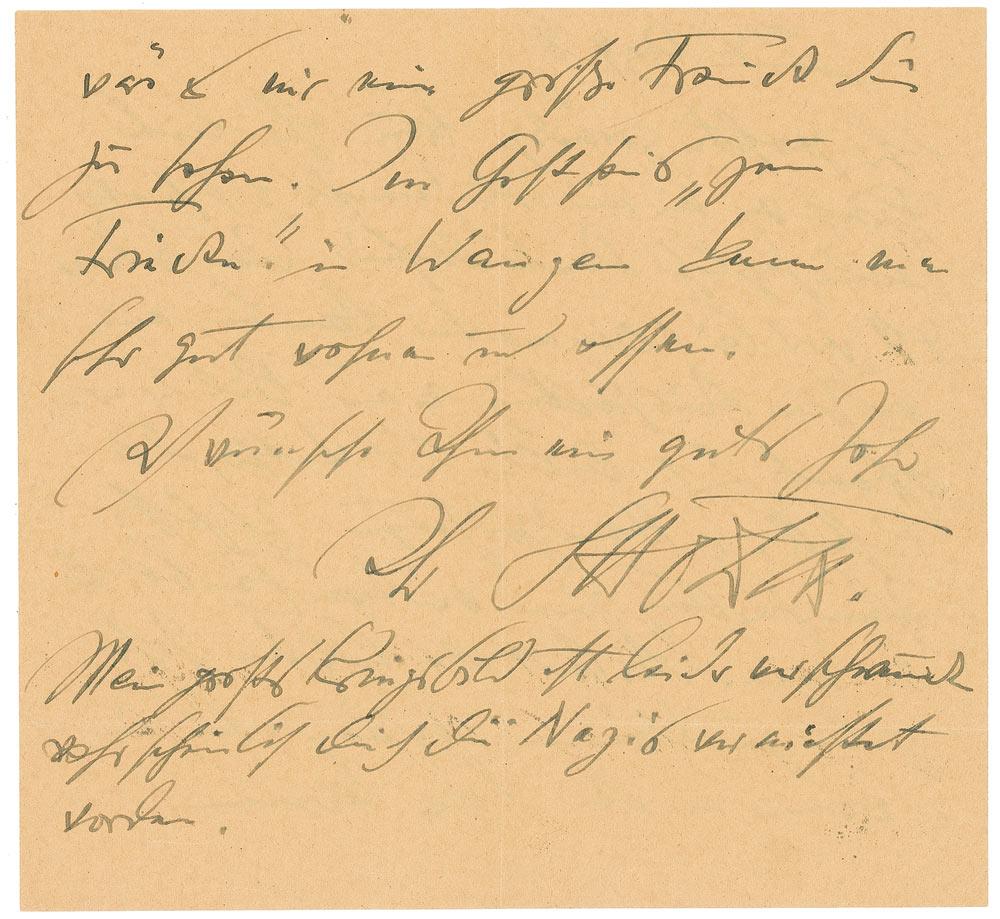 wär es mir eine große Freude Sie
zu sehen. Im Gasthaus „zum
Frieden" in Wangen kann man
sehr gut wohnen und essen.
Ich wünsche Ihnen ein gutes Jahr
Ihr Otto Dix.
Mein großes Kriegsbild ist leider
wahrscheinlich durch die Nazis vernichtet
worden.